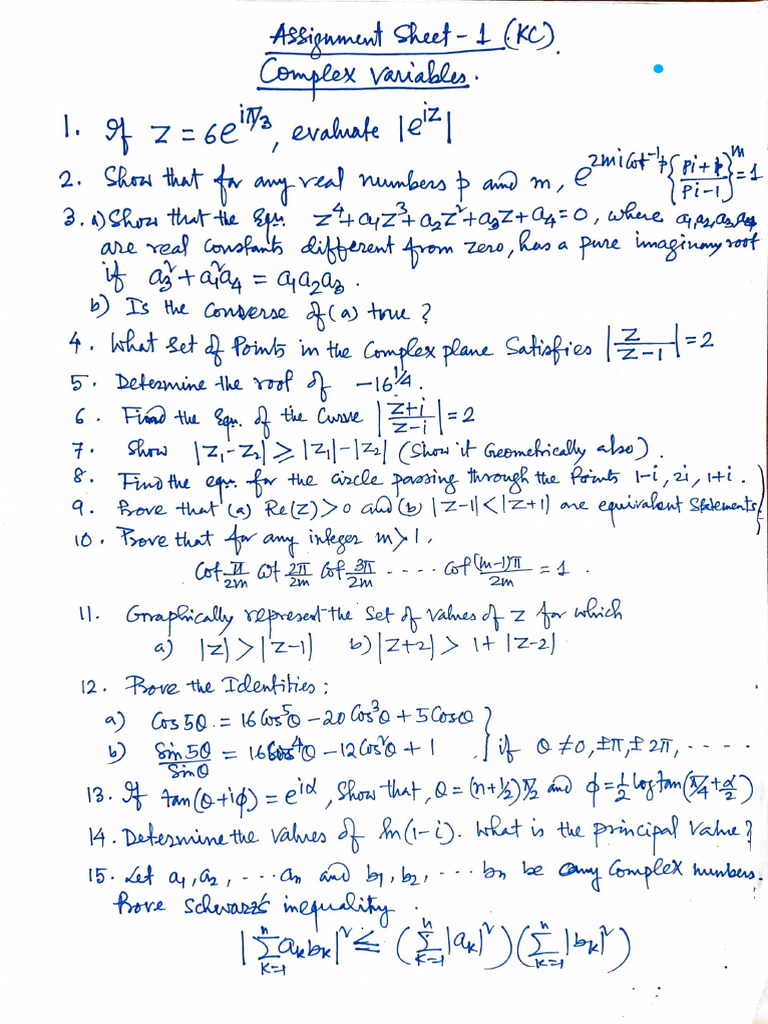 Assignment Sheet - 1 (KC).
Complex Variables.
1. If z = 6e^{iπ/3}, evaluate |e^{iz}|
2. Show that for any real numbers p and m, e^{2mi cot⁻¹p} {(pi+1)/(pi-1)}^m = 1
3. a) Show that the Eqn. z⁴+a₁z³+a₂z²+a₃z+a₄=0, where a₁,a₂,a₃,a₄
are real constants different from zero, has a pure imaginary root
if a₃²+a₁²a₄ = a₁a₂a₃.
b) Is the converse of (a) true?
4. What set of Points in the Complex plane Satisfies |z/(z-1)| = 2
5. Determine the root of -16^{1/4}.
6. Find the Eqn. of the Curve |(z+i)/(z-i)| = 2
7. Show |z₁-z₂| ≥ |z₁|-|z₂| (Show it Geometrically also).
8. Find the eqn. for the circle passing through the Points 1-i, 2i, 1+i.
9. Prove that (a) Re(z)>0 and (b) |z-1|<|z+1| are equivalent Statements.
10. Prove that for any integer m>1,
Cot π/2m Cot 2π/2m Cot 3π/2m ---- Cot (m-1)π/2m = 1.
11. Graphically represent the set of values of z for which
a) |z|>|z-1| b) |z+2| > 1+ |z-2|
12. Prove the Identities:
a) Cos5θ = 16Cos⁵θ - 20Cos³θ + 5Cosθ
b) Sin5θ/Sinθ = 16Cos⁴θ - 12Cos²θ + 1 } if θ ≠ 0, ±π, ±2π, ----
13. If tan(θ+iφ) = e^{iα}, Show that, θ = (n+½)π/2 and φ = ½ log tan(π/4+α/2)
14. Determine the values of ln(1-i). What is the principal value?
15. Let a₁, a₂, --- an and b₁, b₂, --- bn be any Complex numbers.
Prove Schwarz's inequality.
|∑_{k=1}^{n} a_k b_k|² ≤ (∑_{k=1}^{n} |a_k|²)(∑_{k=1}^{n} |b_k|²)